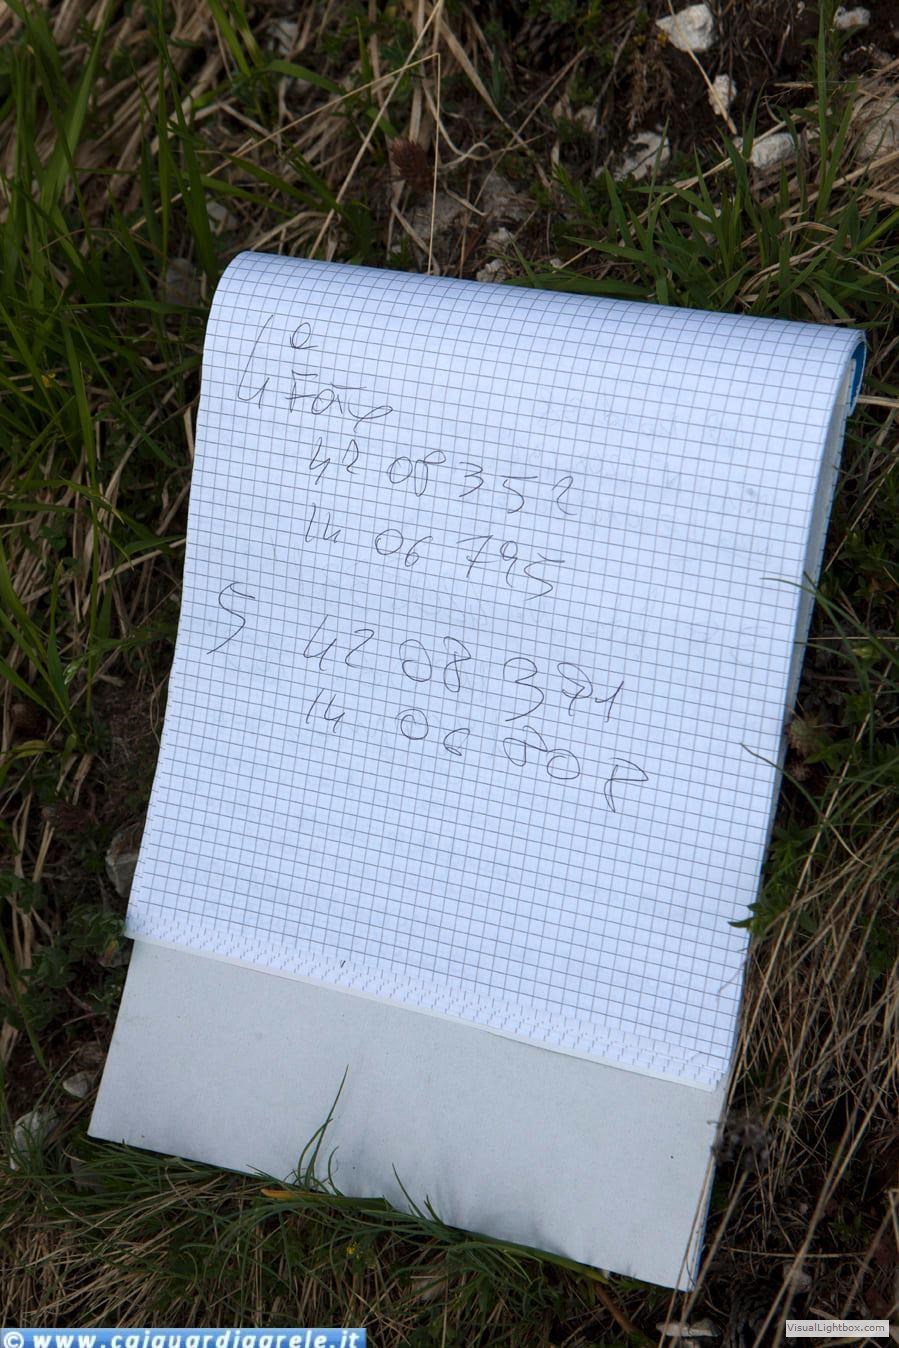 4° Foto
42 08 352
14 06 795
5 42 08 371
14 06 808
© www.caiguardiagrele.it
VisualLightbox.com